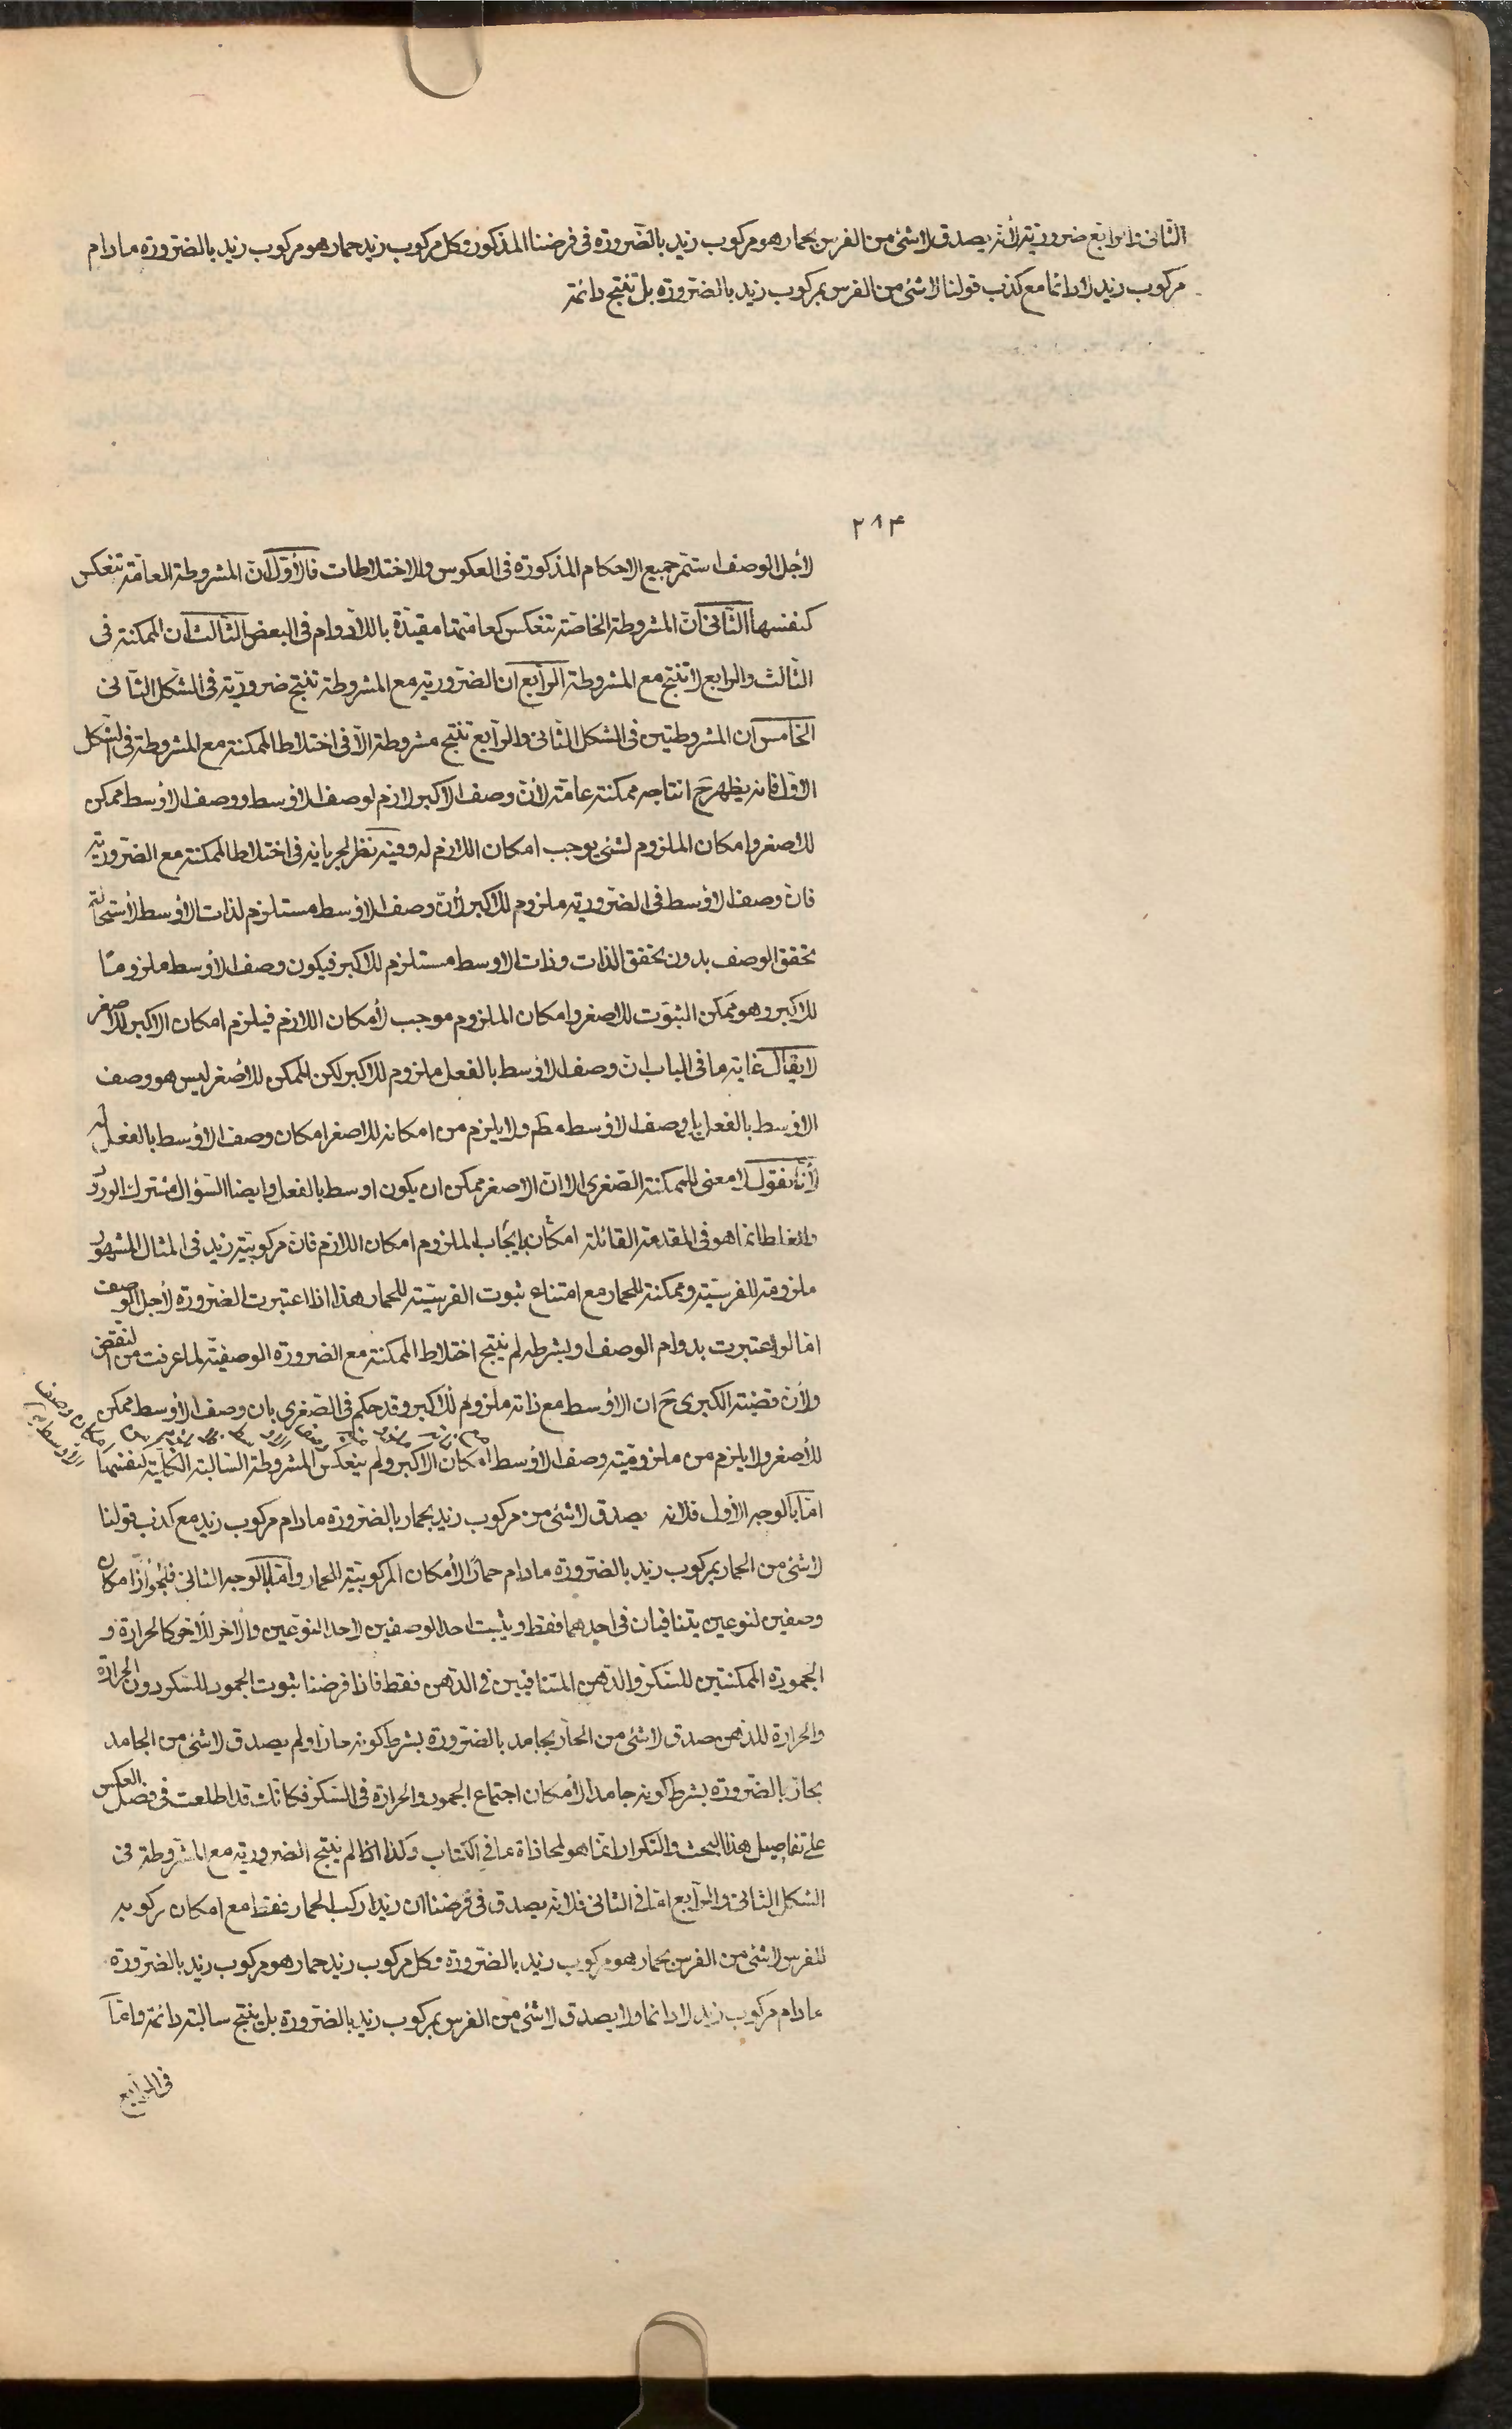 الثانی والرابع ضروریة لأنه یصدق لا شئ من الفرس بحمار هو مرکوب زید بالضرورة فی فرضنا المذکور وکل مرکوب زید حمار هو مرکوب زید بالضرورة ما دام
مرکوب زید لا دائما مع کذب قولنا لا شئ من الفرس بمرکوب زید بالضرورة بل تنتج دائمة
٢٨٤
لأجل الوصف استمر جمیع الاحکام المذکورة فی العکوس والاختلاطات فالأول ان المشروطة العامة تنعکس
کنفسها الثانی ان المشروطة الخاصة تنعکس کعامتها مقیدة باللادوام فی البعض الثالث ان الممکنة فی
الثالث والرابع لا تنتج مع المشروطة الرابع ان الضروریة مع المشروطة تنتج ضروریة فی الشکل الثانی
الخامس ان المشروطتین فی الشکل الثانی والرابع تنتج مشروطة الا فی اختلاط الممکنة مع المشروطة فی الشکل
الاول فانه یظهر ح انتاجه ممکنة عامة لان وصف الاکبر لازم لوصف الاوسط ووصف الاوسط ممکن
للاصغر وامکان الملزوم لشئ یوجب امکان اللازم له وفیه نظر لجریانه فی اختلاط الممکنة مع الضروریة
فان وصف الاوسط فی الضروریة ملزوم للاکبر لأن وصف الاوسط مستلزم لذات الاوسط لأستحالة
تحقق الوصف بدون تحقق الذات وذات الاوسط مستلزم للاکبر فیکون وصف الاوسط ملزوما
للاکبر وهو ممکن الثبوت للاصغر وامکان الملزوم موجب لأمکان اللازم فیلزم امکان الاکبر للاصغر
لا یقال غایة ما فی الباب ان وصف الاوسط بالفعل ملزوم للاکبر لکن الممکن للأصغر لیس هو وصف
الاوسط بالفعل بل وصف الاوسط مطم ولا یلزم من امکانه للاصغر امکان وصف الاوسط بالفعل له
لأنا نقول لا معنی للممکنة الصغری الا ان الاصغر ممکن ان یکون اوسط بالفعل وایضا السؤال مشترک الورود
والغلط انما هو فی المقدمة القائلة امکان بایجاب الملزوم امکان اللازم فان مرکوبیة زید فی المثال المشهور
ملزومة للفرسیة وممکنة للحمار مع امتناع ثبوت الفرسیة للحمار هذا اذا اعتبرت الضرورة لأجل الوصف
اما لو اعتبرت بدوام الوصف او بشرطه لم ینتج اختلاط الممکنة مع الضرورة الوصفیة لما عرفت من النقض
ولأن قضیة الکبری ح ان الاوسط مع ذاته ملزوم للاکبر وقد حکم فی الصغری بان وصف الاوسط ممکن
للأصغر ولا یلزم من ملزومیة وصف الاوسط امکان الاکبر ولم ینعکس المشروطة السالبة الکلیة کنفسها
امکان وصف
الاوسط
اما بالوجه الأول فلانه یصدق لا شئ من مرکوب زید بحمار بالضرورة ما دام مرکوب زید مع کذب قولنا
لا شئ من الحمار بمرکوب زید بالضرورة ما دام حمارا لأمکان المرکوبیة للحمار واما بالوجه الثانی فلجواز امکان
وصفین لنوعین یتنافیان فی احدهما فقط ویثبت احد الوصفین لاحد النوعین والاخر للاخر کالحرارة و
الجمودة الممکنتین للسکر والدهن المتنافیین فی الدهن فقط فاذا فرضنا ثبوت الجمود للسکر دون الحرارة
والحرارة للدهن صدق لا شئ من الحار بجامد بالضرورة بشرط کونه حارا ولم یصدق لا شئ من الجامد
بحار بالضرورة بشرط کونه جامدا لأمکان اجتماع الجمود والحرارة فی السکر فکانک قد اطلعت فی فصل العکس
علی تفاصیل هذا البحث والتکرار انما هو لمحاذاة ما فی الکتاب وکذا اذا لم ینتج الضروریة مع المشروطة فی
الشکل الثانی والرابع اما فی الثانی فلانه یصدق فی فرضنا ان زیدا رکب الحمار فقط مع امکان رکوبه
للفرس لا شئ من الفرس بحمار هو مرکوب زید بالضرورة وکل مرکوب زید حمار هو مرکوب زید بالضرورة
ما دام مرکوب زید لا دائما ولا یصدق لا شئ من الفرس بمرکوب زید بالضرورة بل ینتج سالبة دائمة واما
فی الرابع